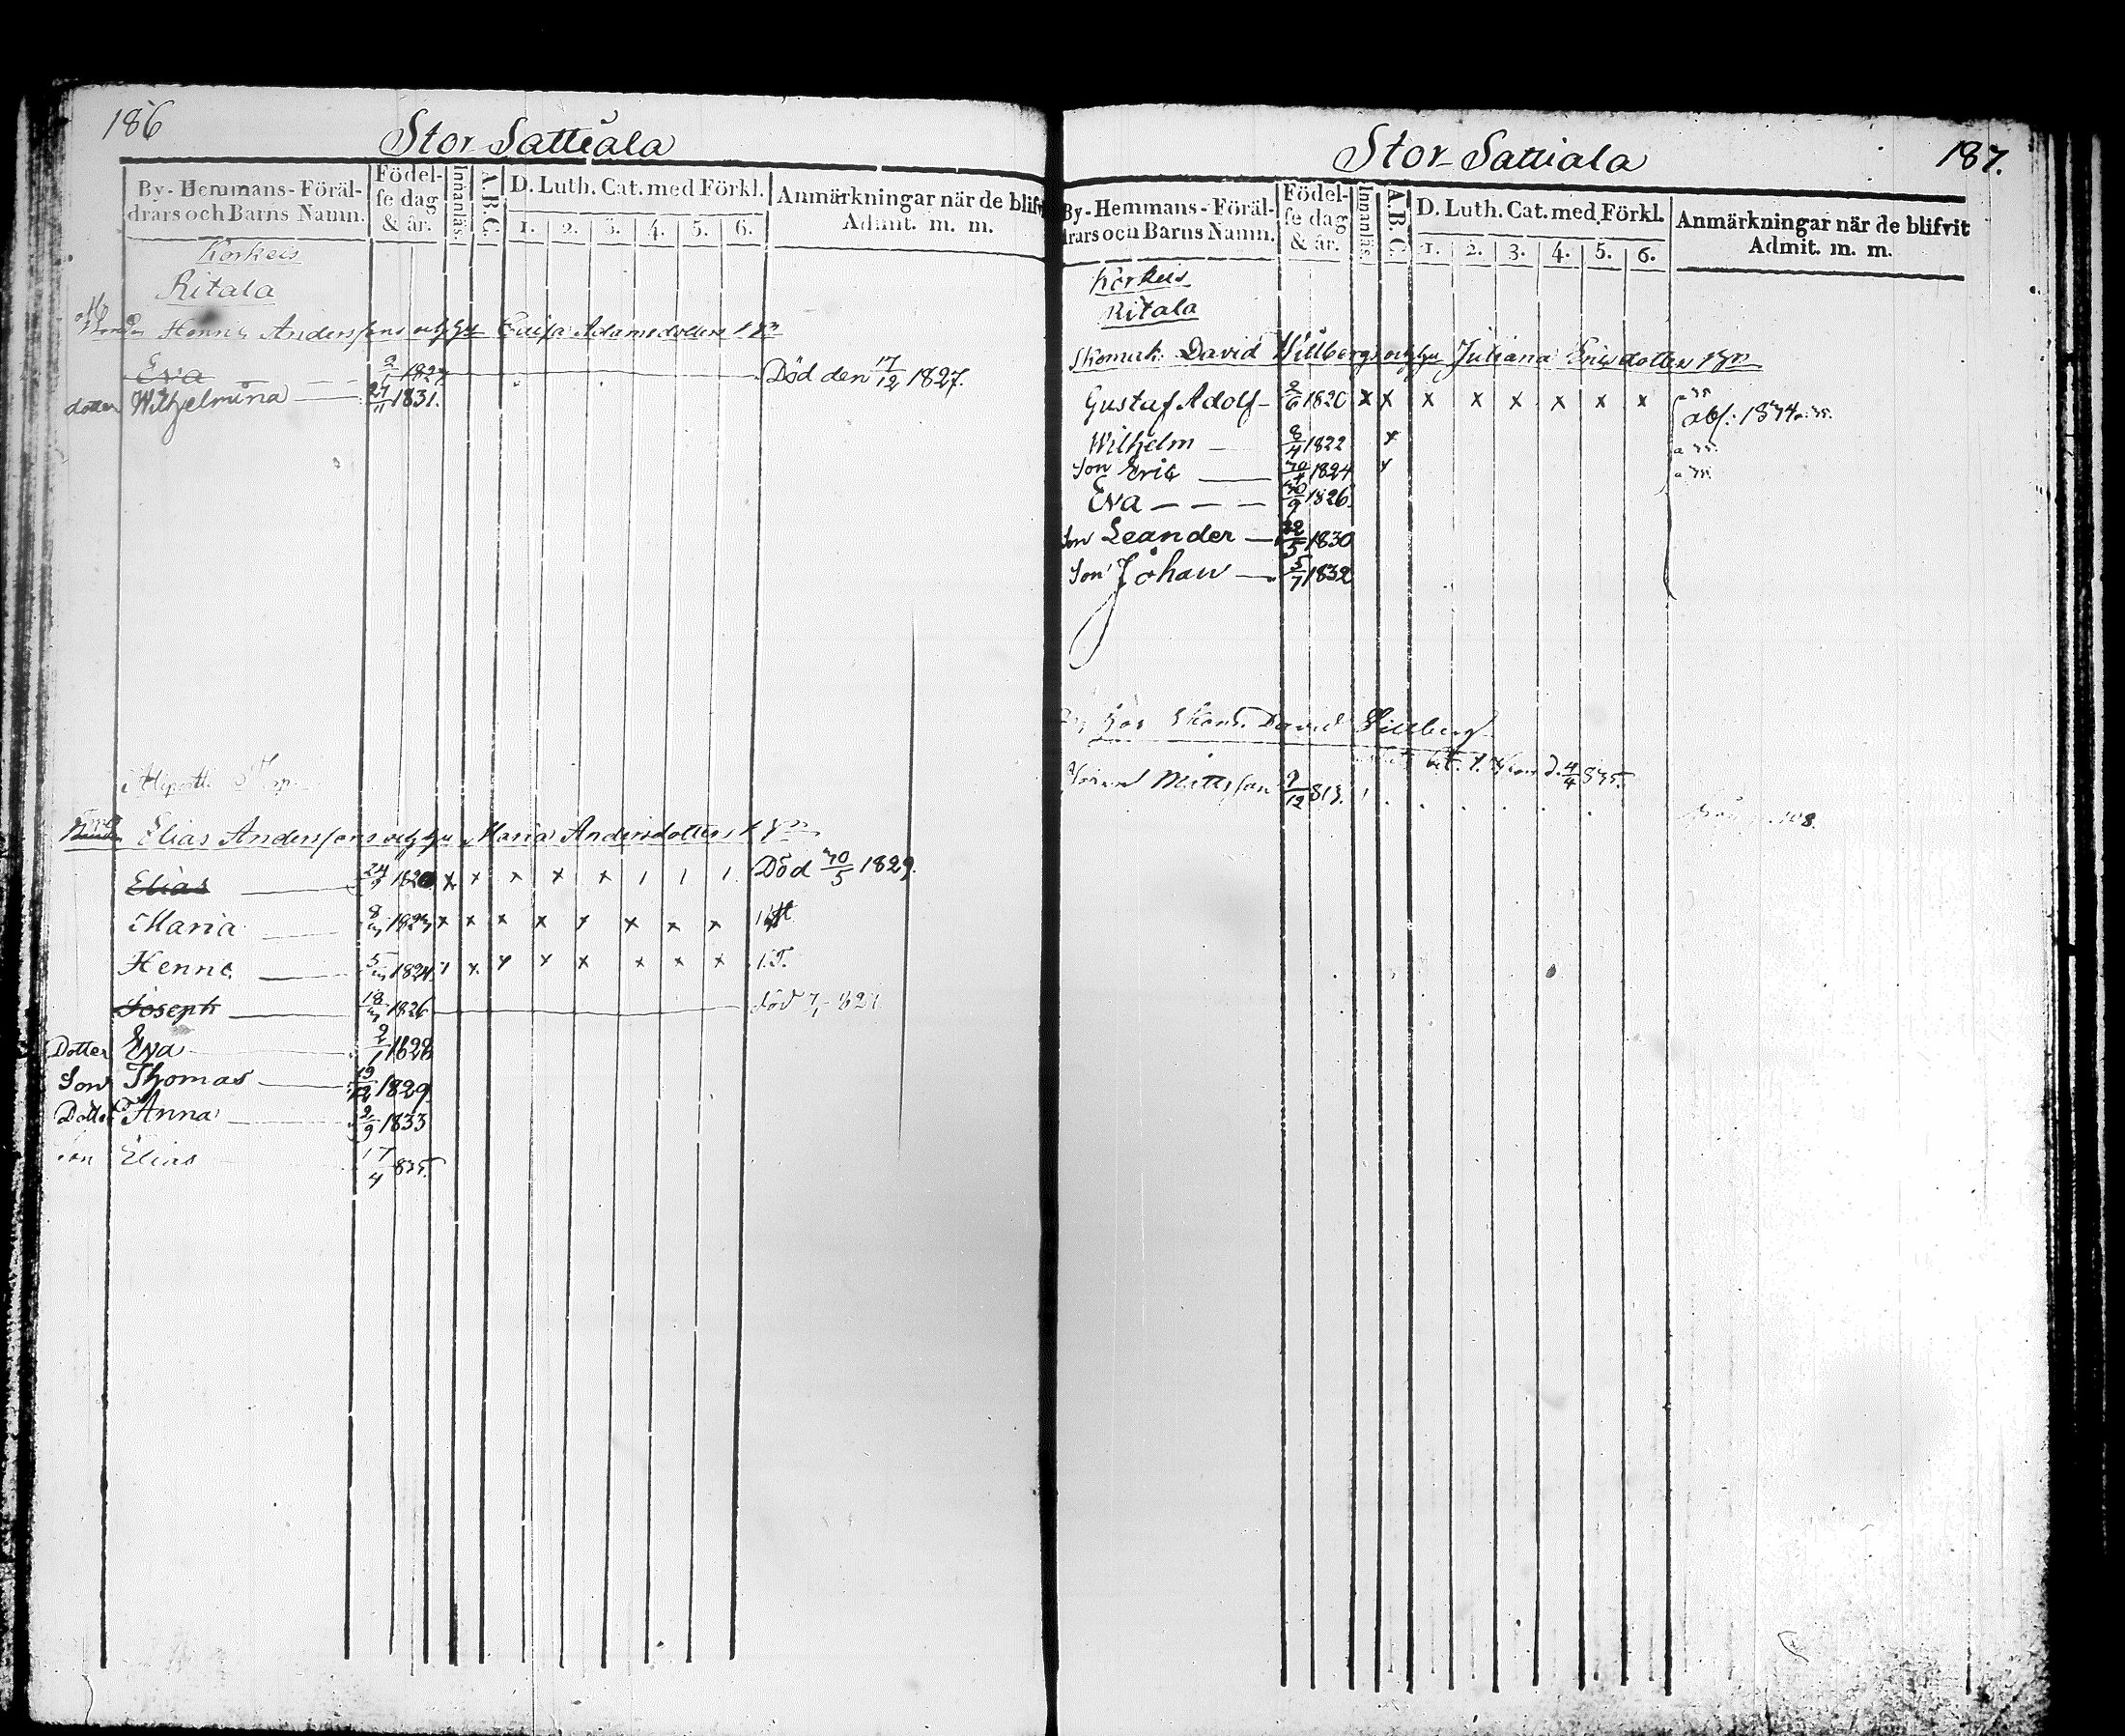 186
Stor Sattiala
By-Hemmans-Föräl-
drars och Barns Namn.
Födel-
se dag
& år.
Innanläs.
A.B.C.
D. Luth. Cat. med Förkl.
1. 2. 3. 4. 5. 6.
Anmärkningar när de blifv
Admit. m. m.
Korkeis
Ritala
Henric Anderssons och hu Adamsdotters
Eva 1827 Död den 17/12 1827.
dotter Wilhelmina 27/11 1831.
Elias Anderssons och hu Maria Andersdotters
Elias 1820 x x x x x 1 1 1 Död 30/5 1829.
Maria 8/3 1823 x x x x x x x x
Henric 5/3 1824 x x x x x x x x
Joseph 18/3 1826
Dotter Eva 2/1 1828
Son Thomas 19/12 1829
Dotter Anna 2/9 1833
Son Elias 17/4 835.
Stor Sattiala
187.
By-Hemmans-Föräl-
drars och Barns Namn.
Födel-
se dag
& år.
Innanläs.
A.B.C.
D. Luth. Cat. med Förkl.
1. 2. 3. 4. 5. 6.
Anmärkningar när de blifvit
Admit. m. m.
Korkeis
Ritala
Skomak. David Willbergs och hu Juliana Ericsdotters
Gustaf Adolf 2/6 1820 x x x x x x x x abs: 1834
Wilhelm 8/4 1822 x
Son Eric 1824
Eva 30/9 1826.
Son Leander 22/5 1830
Son Johan 5/7 1832
hos David Willberg
Mattsson 9/12 813.